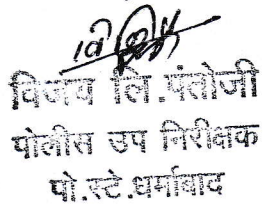 विजय लि.पंतोजी
पोलीस उप निरीक्षक
पो.स्टे.धर्माबाद